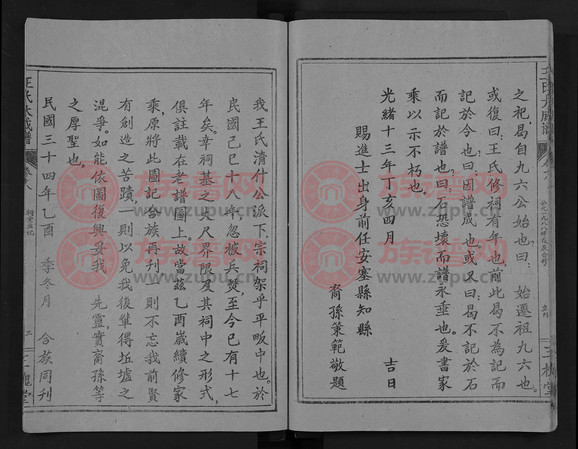 之祀曷自九六公始也曰　始遷祖九六也
或復曰王氏修祠有年也前此曷不為記而
記於今也曰因譜成也或又曰曷不記於石
而記於譜也曰石恐壞而譜永垂也爰書家
乘以示不朽也
光緒十三年丁亥四月　吉日
賜進士出身前任安塞縣知縣
裔孫策範敬題
我王氏清什公派下宗祠架乎平畈中也於
民國己巳十八年忽被兵焚至今已有十七
年矣幸祠基之丈尺界限及其祠中之形式
俱註載在老譜圖上故當茲乙酉歲續修家
乘原將此圖記合族再刊一則不忘我前賢
有創造之苦蹟一則以免我後輩得坵墟之
混爭如能依圖復興妥我　先靈實裔孫等
之厚望也
民國三十四年乙酉　季冬月　合族同刊
王氏大成譜
三槐堂
www.zupu.cn